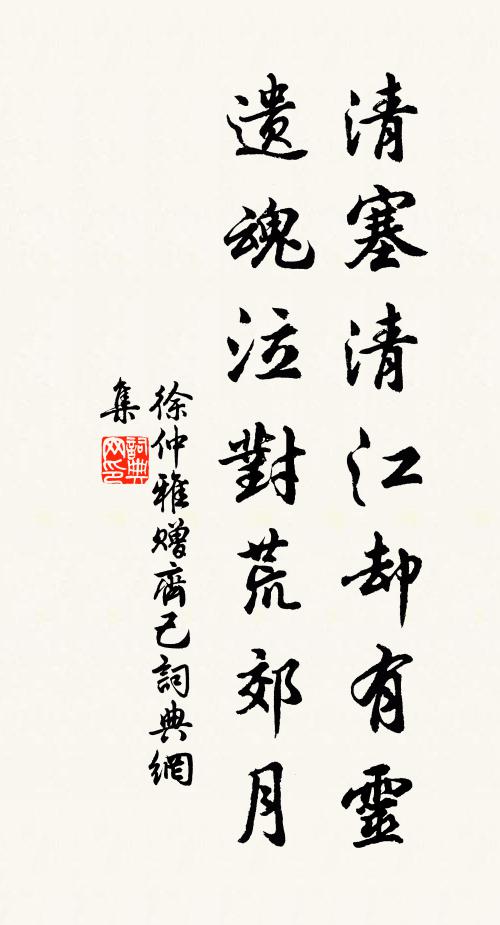 清塞清江却有靈
遺魂泣對荒郊月
徐仲雅赠齊己詞典網
集
詞典网印